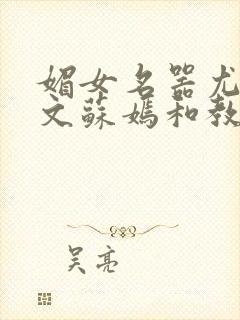 媚女名器尤
文蘇媽和教
吴亮